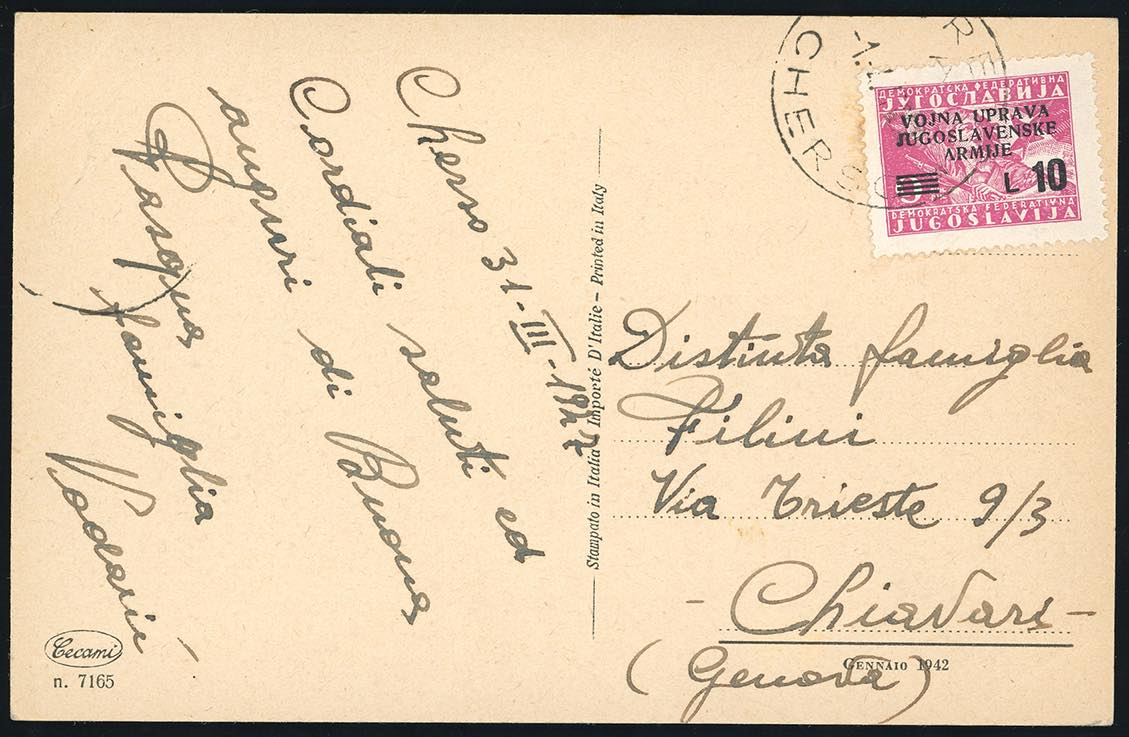 Cherso 31-III-1947
Cordiali saluti ed
auguri di Buona
Pasqua
famiglia
Vodarić
Cecami
n. 7165
Stampato in Italia - Importé D'Italie - Printed in Italy
CHERSO
ДЕМОКРАТСКА ФЕДЕРАТИВНА
ЈУГОСЛАВИЈА
VOJNA UPRAVA
JUGOSLAVENSKE
ARMIJE
L 10
DEMOKRATSKA FEDERATIVNA
JUGOSLAVIJA
Distinta famiglia
Filini
Via Trieste 9/3
- Chiavari -
GENNAIO 1942
(Genova)